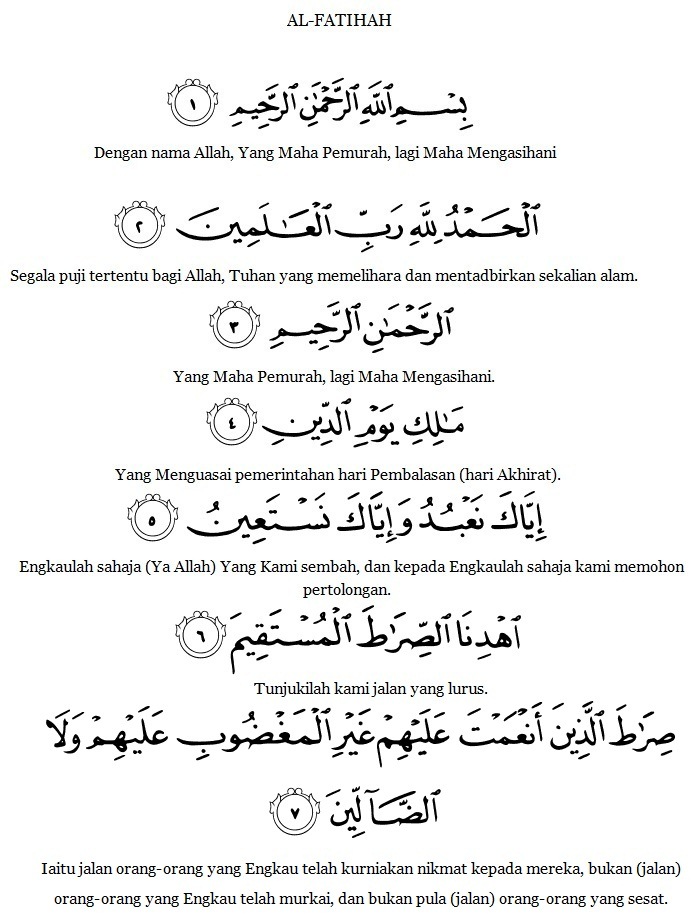 AL-FATIHAH
بِسۡمِ ٱللَّهِ ٱلرَّحۡمَٰنِ ٱلرَّحِيمِ ١
Dengan nama Allah, Yang Maha Pemurah, lagi Maha Mengasihani
ٱلۡحَمۡدُ لِلَّهِ رَبِّ ٱلۡعَٰلَمِينَ ٢
Segala puji tertentu bagi Allah, Tuhan yang memelihara dan mentadbirkan sekalian alam.
ٱلرَّحۡمَٰنِ ٱلرَّحِيمِ ٣
Yang Maha Pemurah, lagi Maha Mengasihani.
مَٰلِكِ يَوۡمِ ٱلدِّينِ ٤
Yang Menguasai pemerintahan hari Pembalasan (hari Akhirat).
إِيَّاكَ نَعۡبُدُ وَإِيَّاكَ نَسۡتَعِينُ ٥
Engkaulah sahaja (Ya Allah) Yang Kami sembah, dan kepada Engkaulah sahaja kami memohon
pertolongan.
ٱهۡدِنَا ٱلصِّرَٰطَ ٱلۡمُسۡتَقِيمَ ٦
Tunjukilah kami jalan yang lurus.
صِرَٰطَ ٱلَّذِينَ أَنۡعَمۡتَ عَلَيۡهِمۡ غَيۡرِ ٱلۡمَغۡضُوبِ عَلَيۡهِمۡ وَلَا
ٱلضَّآلِّينَ ٧
Iaitu jalan orang-orang yang Engkau telah kurniakan nikmat kepada mereka, bukan (jalan)
orang-orang yang Engkau telah murkai, dan bukan pula (jalan) orang-orang yang sesat.